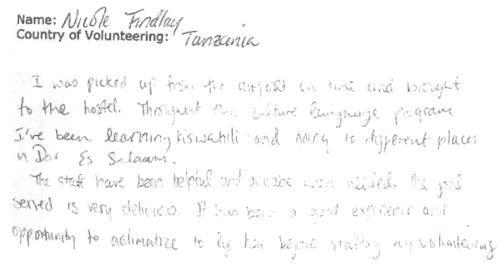 Name: Nicole Findlay
Country of Volunteering: Tanzania
I was picked up from the airport on time and brought
to the hostel. Throughout the culture language program
I've been learning Kiswahili and going to different places
in Dar Es Salaam.
The staff have been helpful and when needed. The food
served is very delicious. It has been a good experience and
opportunity to aclimatize to life here before starting my volunteering